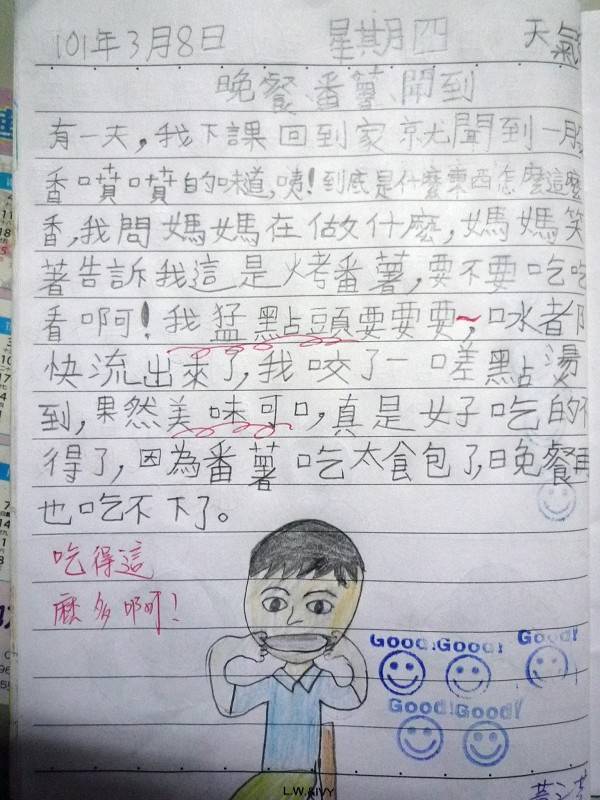 101年3月8日 星期四 天氣
晚餐番薯聞到
有一天,我下課回到家就聞到一
香噴噴的味道,咦!到底是什麼東西怎麼這麼
香,我問媽媽在做什麼,媽媽笑
著告訴我這是烤番薯,要不要吃吃
看啊!我猛點頭要要要~,口水都
快流出來了,我咬了一口差點燙
到,果然美味可口,真是好吃的不
得了,因為番薯吃太飽了,晚餐再
也吃不下了。
吃得這
麼多啊!
Good! Good! Good!
Good! Good!
L.W.KIVY